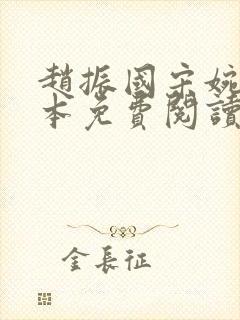 趙振國宋婉
本免費閱讀
金長征